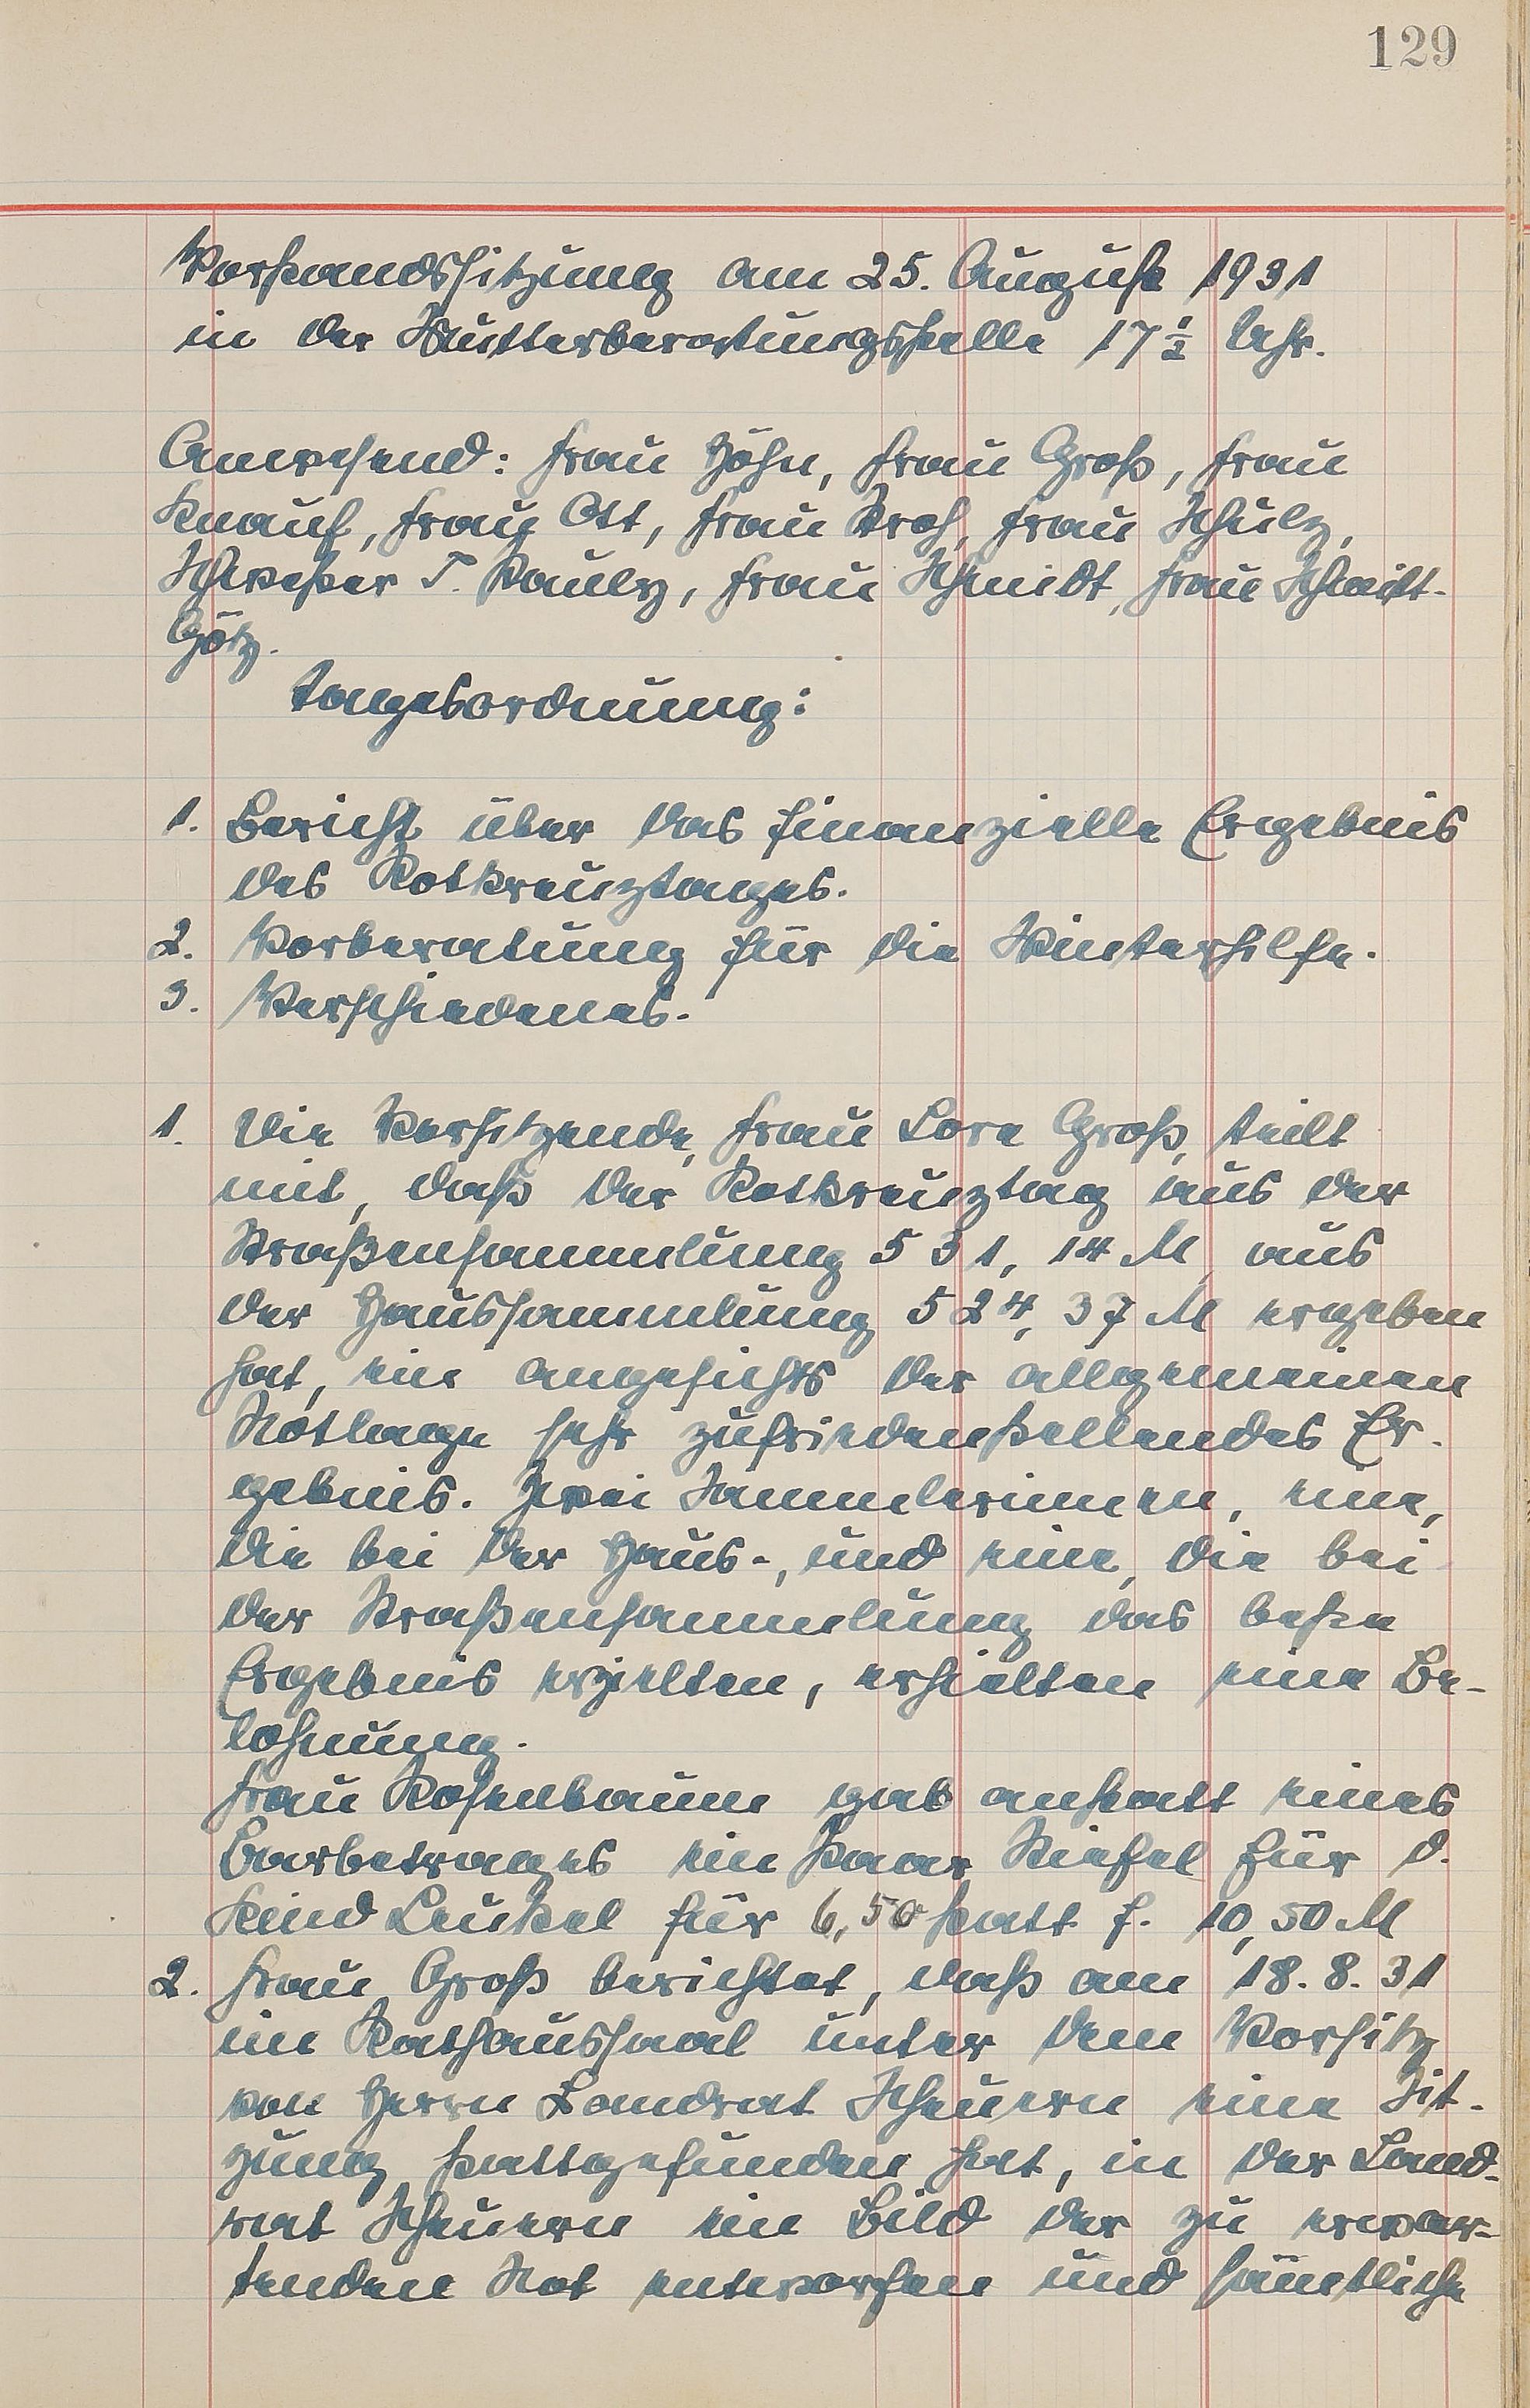 129
Vorstandssitzung am 25. August 1931
in der Mutterberatungsstelle 17 1/2 Uhr.
Anwesend: Frau Höhn, Frau Groß, Frau
Knauf, Frau Ott, Frau Frau Schulz,
Schwester T. Pauly, Frau Schmidt, Frau Schmidt-
Götz.
Tagesordnung:
1. Bericht über das finanzielle Ergebnis
des Rotkreuztages.
2. Vorberatung für die Winterhilfe.
3. Verschiedenes.
1. Die Vorsitzende, Frau Lore Groß, teilt
mit, daß der Rotkreuztag aus der
Straßensammlung 531,14 M, aus
der Haussammlung 524,37 M ergeben
hat, ein angesichts der allgemeinen
Notlage sehr zufriedenstellendes Er-
gebnis. Zwei Sammlerinnen, eine,
die bei der Haus-, und eine, die bei
der Straßensammlung das beste
Ergebnis erzielten, erhielten eine Be-
lohnung.
Frau Rosenbaum gab anstatt eines
Barbetrages ein Paar Stiefel für d.
Kind für 6,50 statt f. 10,50 M
2. Frau Groß berichtet, daß am 18.8.31
im Rathaussaal unter dem Vorsitz
von Herrn Landrat Scheuern eine Sit-
zung stattgefunden hat, in der Land-
rat Scheuern ein Bild der zu erwar-
tenden Not entworfen und sämtliche